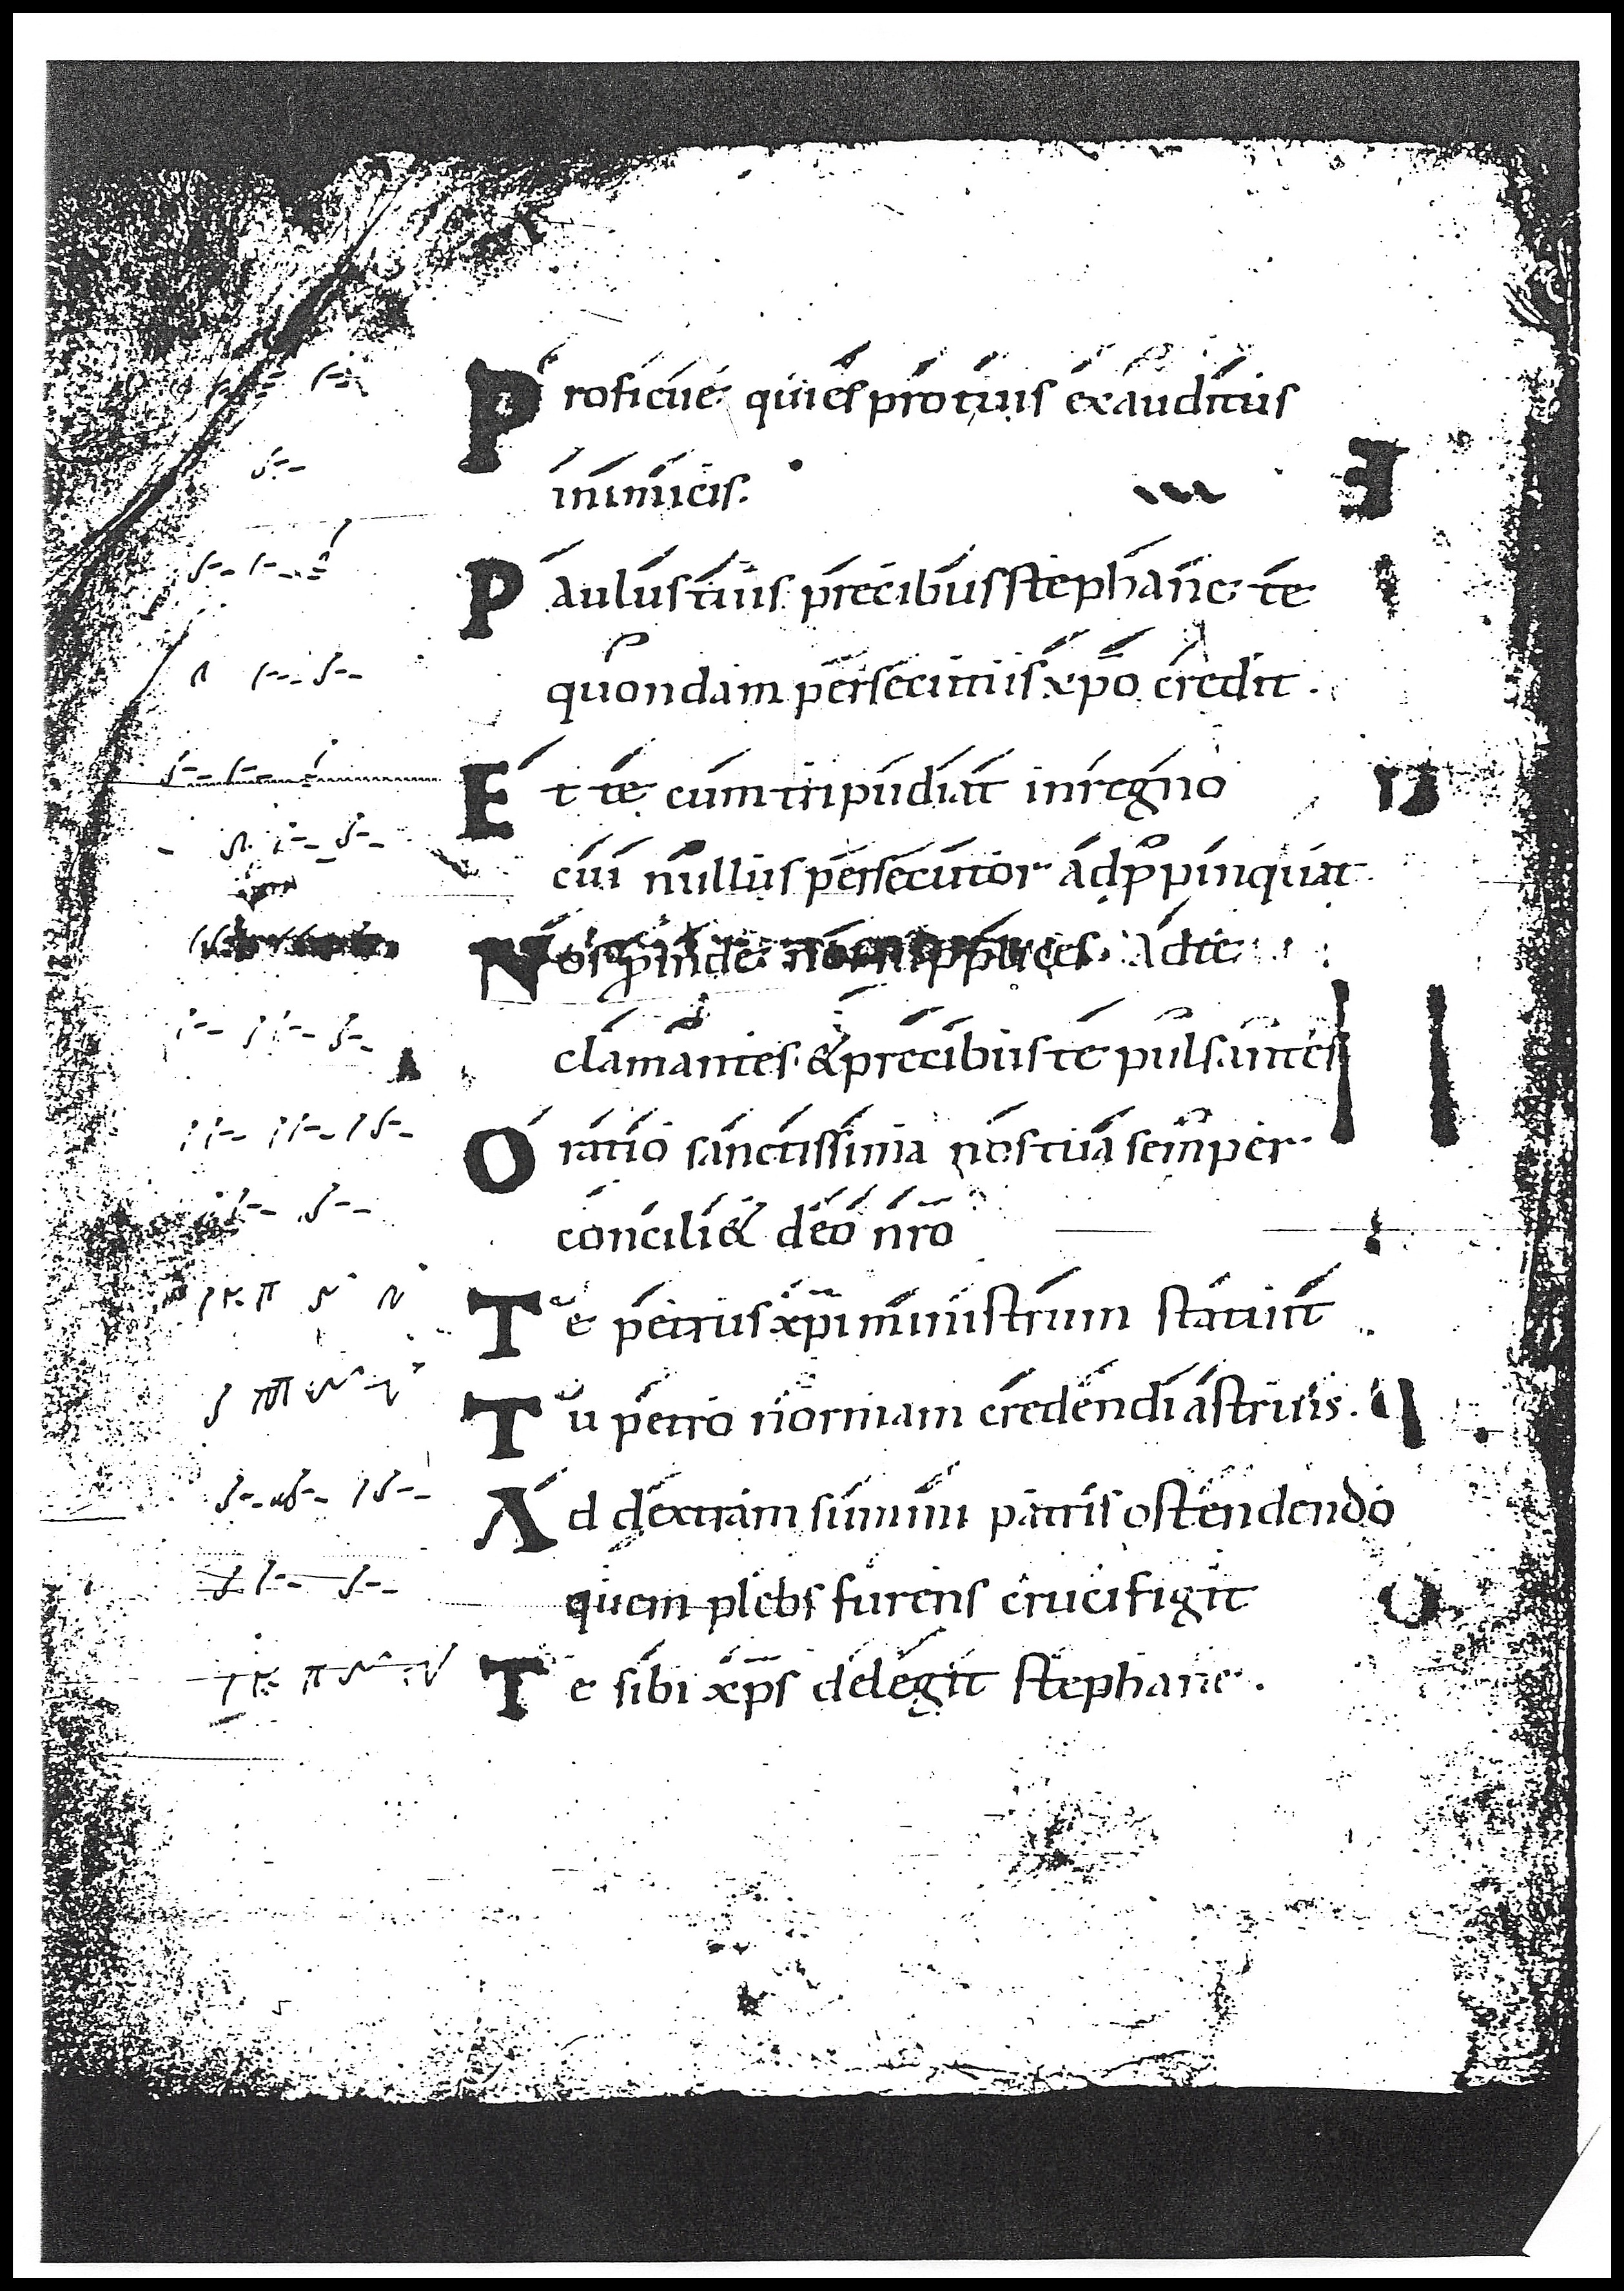 Proficue qui es pro tuis exauditus
inimicis.
Paulus tuis precibus stephane te
quondam persecutus xpo credit.
Et te cum tripudiat in regno
cui nullus persecutor adppinquat
Nos pinde supplices ad te
clamantes & precibus te pulsantes
Oratio sanctissima nos tua semper
concili& deo nro
Te petrus xpi ministrum statuit
Tu petro normam credendi astruis.
Ad dextram summi patris ostendendo
quem plebs furens crucifigit
Te sibi xps delegit stephane.